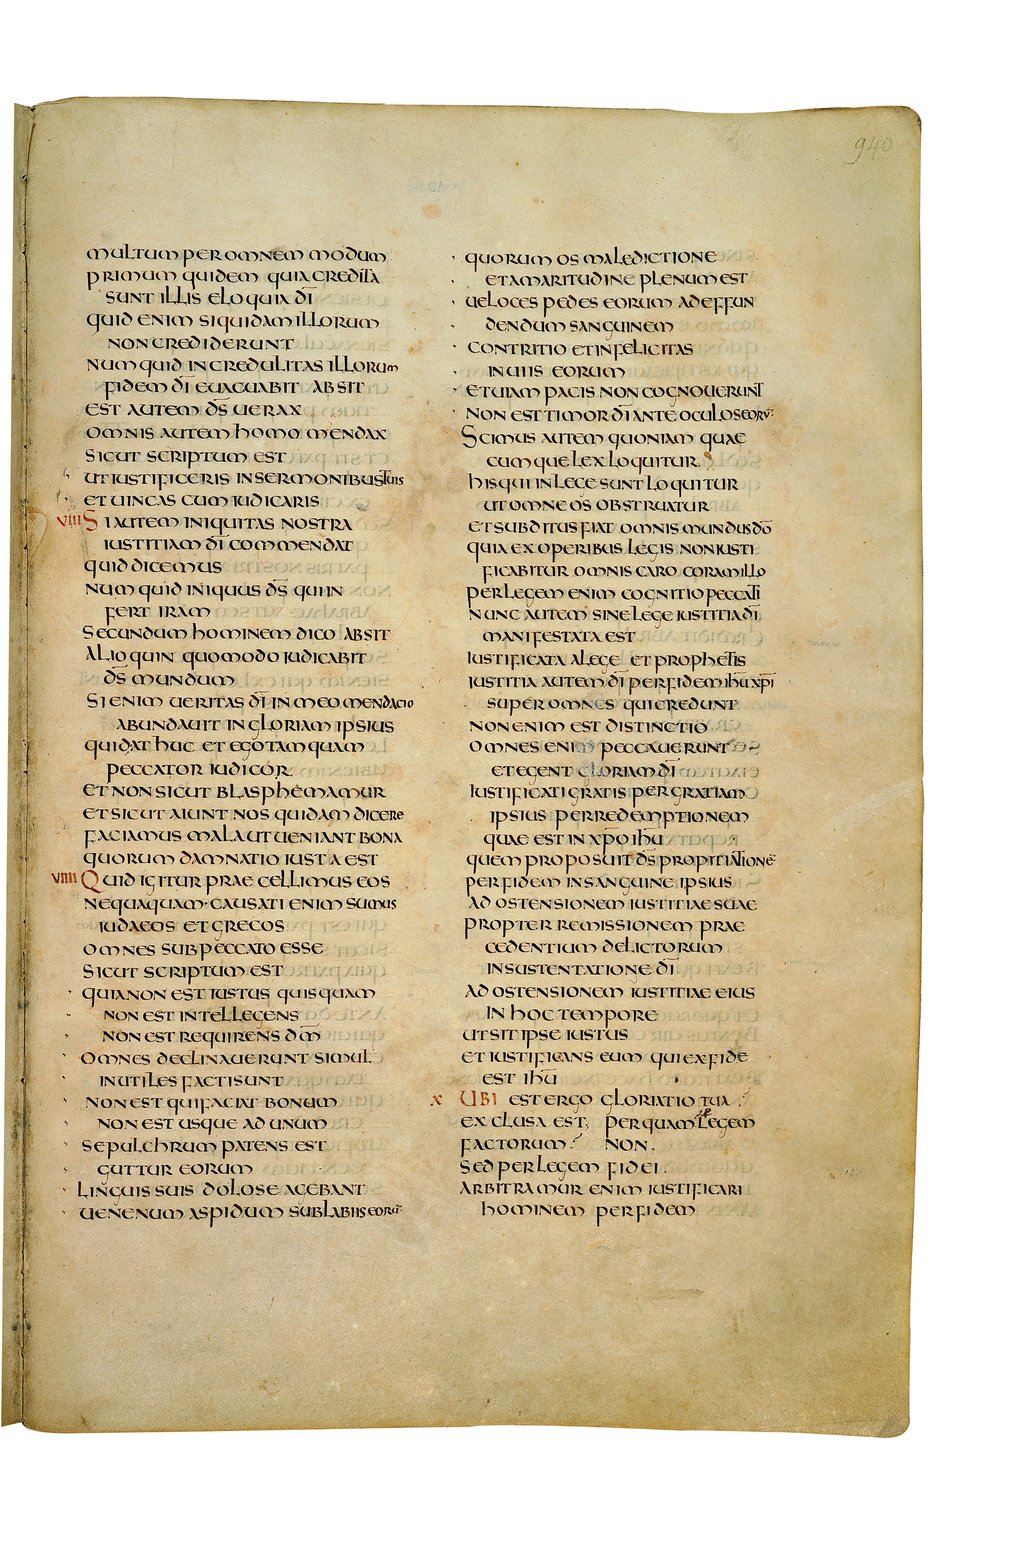 940
multum per omnem modum
primum quidem quia credita
sunt illis eloquia dī
quid enim si quidam illorum
non crediderunt
numquid incredulitas illorum
fidem dī euacuabit absit
est autem d̄s uerax
omnis autem homo mendax
sicut scriptum est
ut iustificeris in sermonibus tuis
et uincas cum iudicaris
VIII Si autem iniquitas nostra
iustitiam dī commendat
quid dicemus
numquid iniquus d̄s qui in
fert iram
secundum hominem dico absit
alioquin quomodo iudicabit
d̄s mundum
si enim ueritas dī in meo mendacio
abundauit in gloriam ipsius
quid at huc et ego tamquam
peccator iudicor
et non sicut blasphemamur
et sicut aiunt nos quidam dicere
faciamus mala ut ueniant bona
quorum damnatio iusta est
VIIII Quid igitur praecellimus eos
nequaquam causati enim sumus
iudaeos et grecos
omnes sub peccato esse
sicut scriptum est
quia non est iustus quisquam
non est intellegens
non est requirens d̄m
omnes declinauerunt simul
inutiles facti sunt
non est qui faciat bonum
non est usque ad unum
sepulchrum patens est
guttur eorum
linguis suis dolose agebant
uenenum aspidum sub labiis eorū
quorum os maledictione
et amaritudine plenum est
ueloces pedes eorum ad effun
dendum sanguinem
contritio et infelicitas
in uiis eorum
et uiam pacis non cognouerunt
non est timor dī ante oculos eorū
Scimus autem quoniam quae
cumque lex loquitur
his qui in lege sunt loquitur
ut omne os obstruatur
et subditus fiat omnis mundus dō
quia ex operibus legis non iusti
ficabitur omnis caro coram illo
per legem enim cognitio peccati
nunc autem sine lege iustitia dī
manifestata est
iustificata a lege et prophetis
iustitia autem dī per fidem ihū xpī
super omnes qui credunt
non enim est distinctio
omnes enim peccauerunt
et egent gloriam dī
iustificati gratis per gratiam
ipsius per redemptionem
quae est in xpō ihū
quem proposuit d̄s propitiatione
per fidem in sanguine ipsius
ad ostensionem iustitiae suae
propter remissionem prae
cedentium delictorum
in sustentatione dī
ad ostensionem iustitiae eius
in hoc tempore
ut sit ipse iustus
et iustificans eum qui ex fide
est ihū
X Ubi est ergo gloriatio tua
exclusa est, per quam legem
factorum non.
sed per legem fidei.
arbitramur enim iustificari
hominem per fidem